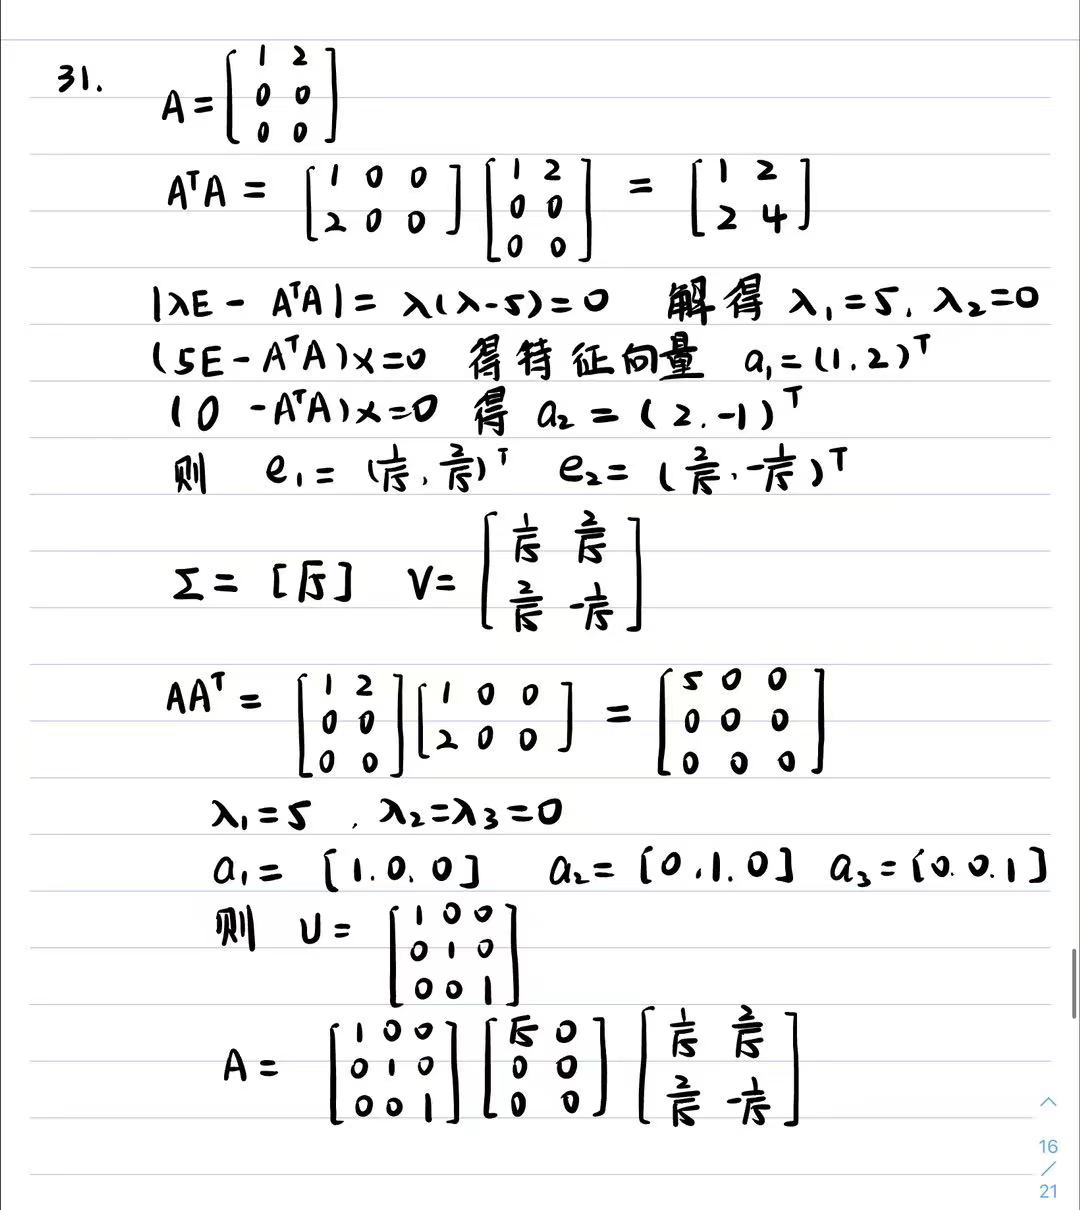 31. A = [1 2; 0 0; 0 0]
AᵀA = [1 0 0; 2 0 0] [1 2; 0 0; 0 0] = [1 2; 2 4]
|λE - AᵀA| = λ(λ-5)=0 解得 λ₁=5, λ₂=0
(5E - AᵀA)x=0 得特征向量 a₁=(1,2)ᵀ
(0 -AᵀA)x=0 得 a₂ = (2,-1)ᵀ
则 e₁= (1/√5, 2/√5)ᵀ e₂= (2/√5, -1/√5)ᵀ
Σ = [√5] V= [1/√5 2/√5; 2/√5 -1/√5]
AAᵀ = [1 2; 0 0; 0 0] [1 0 0; 2 0 0] = [5 0 0; 0 0 0; 0 0 0]
λ₁=5 , λ₂=λ₃=0
a₁= [1.0.0] a₂= [0.1.0] a₃=[0.0.1]
则 U = [1 0 0; 0 1 0; 0 0 1]
A = [1 0 0; 0 1 0; 0 0 1] [√5 0; 0 0; 0 0] [1/√5 2/√5; 2/√5 -1/√5]
16
/
21